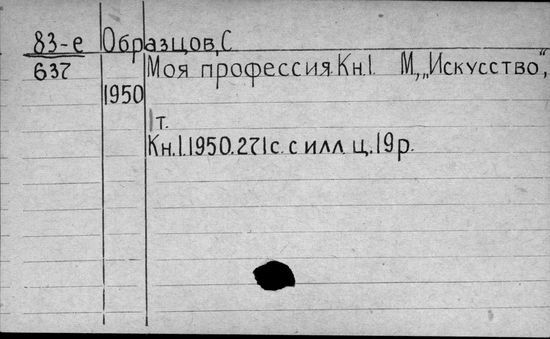 83-е Образцов, С
637 Моя профессия. Кн.1. М., „Искусство",
1950
1т.
Кн.1.1950.271с. с илл. ц.19р.